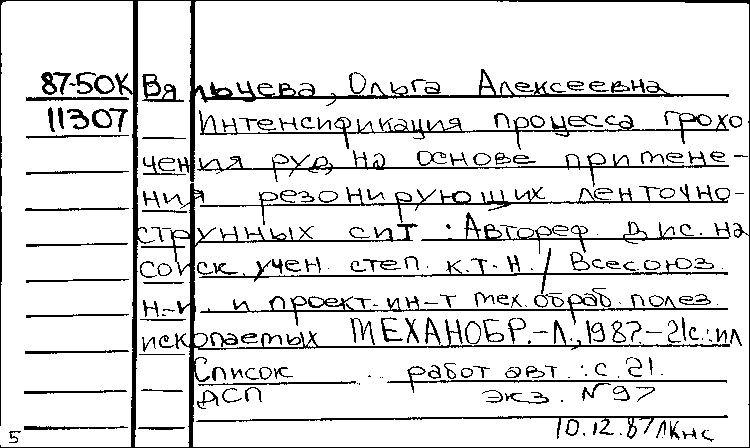 87-50К Вяльцева, Ольга Алексеевна
11307 Интенсификация процесса грохо
чения руд на основе примене-
ния резонирующих ленточно-
струнных сит : Автореф. дис. на
соиск. учен. степ. к.т.н. / Всесоюз.
н-и. и проект. ин-т мех. обраб. полез.
ископаемых МЕХАНОБР. - Л., 1987. - 21с.: ил
Список работ авт.: с. 21.
ДСП экз. N 97
10.12.87 ЛКнс
5